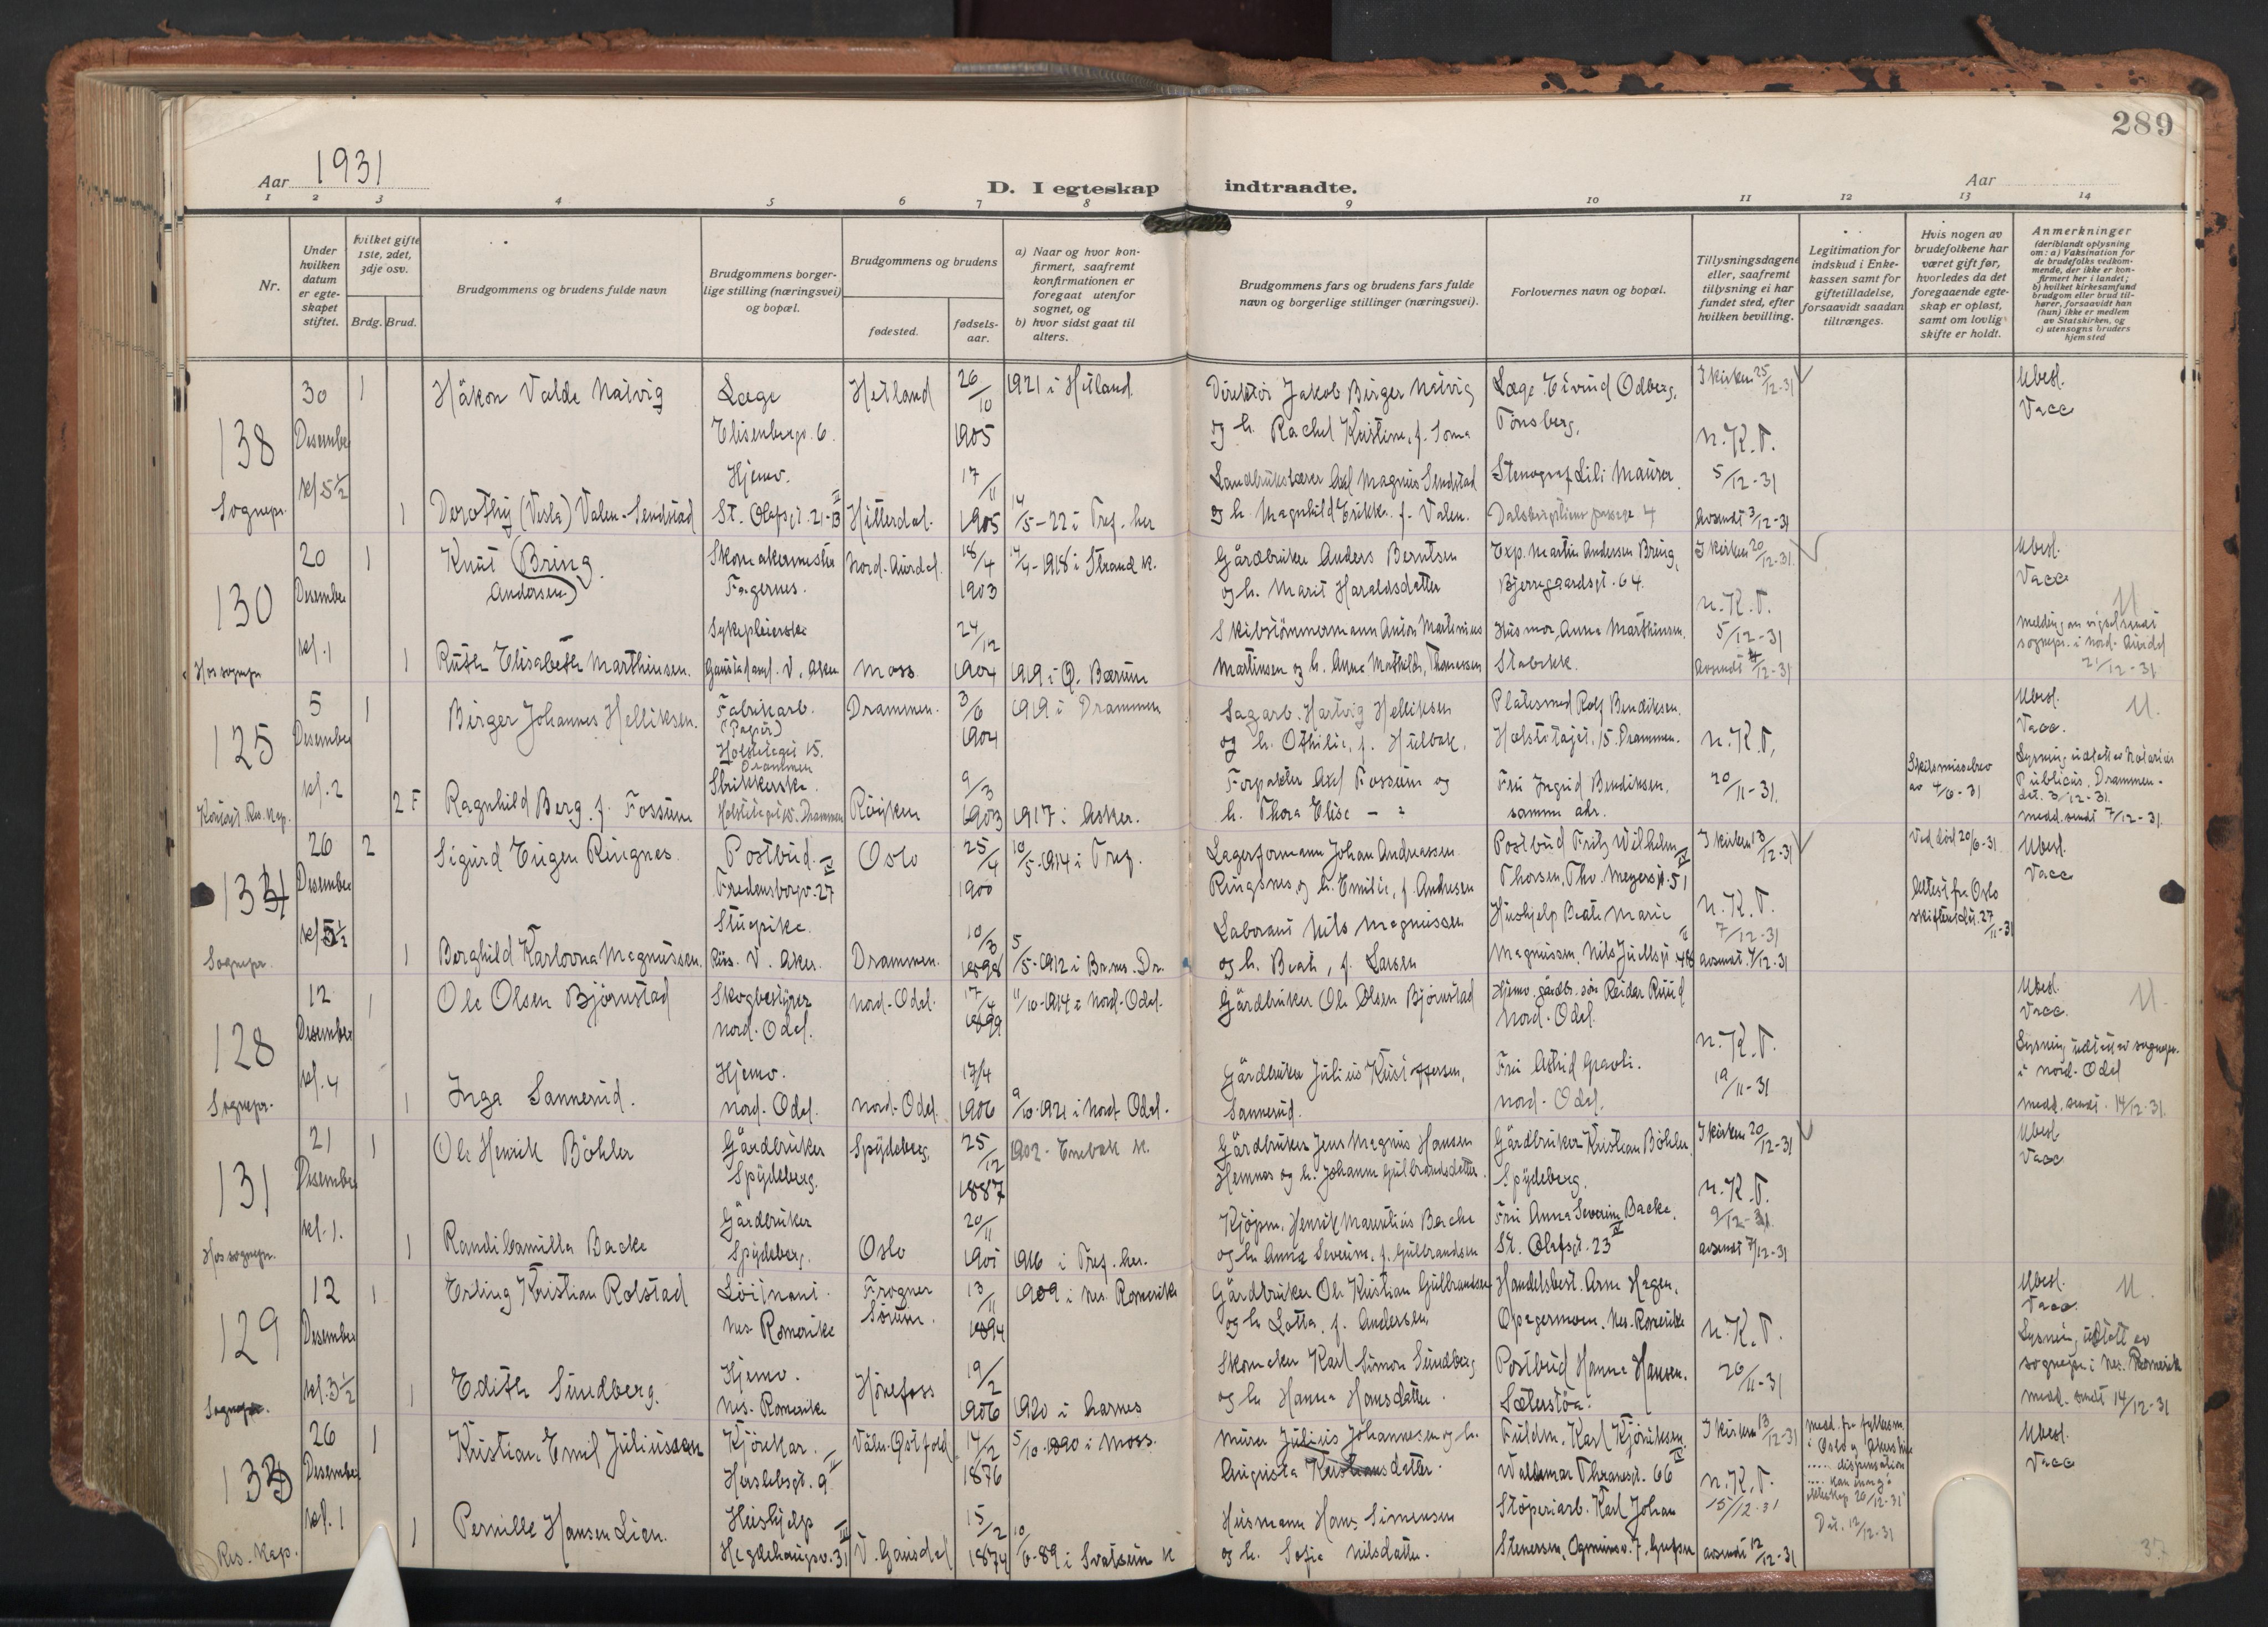 289
Aar 1931
D. I egteskap indtraadte.
Aar
1 2 3 4 5 6 7 8 9 10 11 12 13 14
Nr.
Under hvilken datum er egteskapet stiftet.
hvilket gifte 1ste, 2det, 3dje osv.
Brdg. Brud.
Brudgommens og brudens fulde navn
Brudgommens borgerlige stilling (næringsvei) og bopæl.
Brudgommens og brudens
fødested.
fødselsaar.
a) Naar og hvor konfirmert, saafremt konfirmationen er foregaat utenfor sognet, og
b) hvor sidst gaat til alters.
Brudgommens fars og brudens fars fulde navn og borgerlige stillinger (næringsvei).
Forlovernes navn og bopæl.
Tillysningsdagene eller, saafremt tillysning ei har fundet sted, efter hvilken bevilling.
Legitimation for indskud i Enkekassen samt for giftetilladelse, forsaavidt saadan tiltrænges.
Hvis nogen av brudefolkene har været gift før, hvorledes da det foregaaende egteskap er opløst, samt om lovlig skifte er holdt.
Anmerkninger
(deriblandt oplysning om: a) Vaksination for de brudefolks vedkommende, der ikke er konfirmert her i landet; b) hvilket kirkesamfund brudgom eller brud tilhører, forsaavidt han (hun) ikke er medlem av Statskirken, og c) utensogns bruders hjemsted
138 30 Desember kl. 5½ Sognepr.
1 Håkon Valde Natvig
Læge
Elisenbergv. 6.
Hetland 26/10 1905
1921 i Hetland.
Direktør Jakob Birger Natvig
og h. Rachel Kristine, f. Soma
Læge Eivind Odberg,
Tønsberg.
I kirken 25/12-31
N.K.T.
5/12-31
avsendt 3/12-31
Ubesl.
Vacc
1 Dorothy (Vesla) Valen-Sendstad
Hjemv.
St. Olafsgt. 21
Hitterdal. 17/11 1905
14/5-22 i Tref. her
Landbrukslærer Axel Magnus Sendstad
og h. Magnhild Erikke f. Valen.
Stenograf Lili Maurer
130 20 Desember kl. 1 Hos sognepr
1 Knut (Bring Andersen)
Skomakermester
Fagernes.
Nord-Aurdal. 18/4 1903
1918 i Strand k.
Gårdbruker Anders Berntsen
og h. Marit Haraldsdatter
Exp. Martin Andersen Bring,
Bjerregaardsgt. 64.
I kirken 20/12-31
N.K.T.
5/12-31
avsendt 4/12-31
Ubesl.
Vacc
U
melding om vigsel sendt
sognepr. i Nord-Aurdal
21/12-31
1 Ruth Elisabeth Marthinsen.
Sykepleierske
Gaustad asyl. V. Aker
Moss 24/12 1904
1919 i Ø. Bærum
Skibstømmermann Anton Martinius
Martinsen og h. Anna Mathilde, Thomessen
Husmor Anna Marthinsen.
Stabekk.
125 5 Desember kl. 2 Kontoret Res. Kap.
1 Birger Johannes Helliksen.
Fabrikarb.
(Papir)
Holstitaget 15.
Drammen
Drammen. 3/6 1904
1919 i Drammen
Sagarb. Hartvig Helliksen
og h. Othilie, f. Hulbak.
Platesmed Rolf Bendiksen.
Holstitaget, 15. Drammen.
N.K.T.
20/11-31.
Skilsmissebev
av 4/6-31
Ubesl. U.
Vacc.
Lysning utstedt av Notarius
Publicus, Drammen.
dat. 3/12-31.
medd. sendt 7/12-31.
2 F Ragnhild Berg. f. Fossum
Strikkerske.
Holstitaget 15. Drammen
Røyken 9/3 1903
1917 i Asker.
Forpakter Axel Fossum og
h. Thora Elise
Fru Ingrid Bendiksen.
samme adr.
134 26 Desember kl. 5½ Sognepr.
2 Sigurd Eugen Ringnes.
Postbud. IV
Fredensborgv. 27
Oslo 25/4 1900
10/5-1914 i Tref.
Lagerformann Johan Andreassen
Ringsnes, og h. Emilie, f. Andresen
Postbud Fritz Wilhelm
Thorsen, Thv. Meyersgt. 51
I kirken 13/12-31
N.K.T.
7/12-31
avsendt. 4/12-31
Ved død 20/6-31
Attest fra Oslo
skifterett dat. 27/11-31
Ubesl.
Vacc
1 Borghild Karlovna Magnussen.
Stuepike.
Riis. V. Aker.
Drammen. 10/3 1898
5/5-1912 i Br.nes. Dr.
Laborant Nils Magnussen
og h. Beate, f. Larsen
Hushjelp Beate Marie
Magnussen. Nils Juelsgt. 46
128 12 Desember kl. 4 Sognepr.
1 Ole Olsen Bjørnstad
Skogbestyrer
Nord-Odal.
Nord-Odal. 17/4 1899
11/10-1914 i Nord-Odal.
Gårdbruker Ole Olsen Bjørnstad
Hjemv. gårdbr. søn Reidar Ruud
Nord-Odal.
N.K.T.
19/11-31
Ubesl. U.
Vacc.
Lysning utstedt av sognepr.
i Nord-Odal
medd. sendt. 14/12-31.
1 Inga Sannerud.
Hjemv.
Nord-Odal.
Nord-Odal. 17/4 1906
9/10-1921 i Nord-Odal.
Gårdbruker Julius Kristoffersen,
Sannerud.
Fru Astrid Gravli.
Nord-Odal.
131 21 Desember kl. 1. Hos sognepr.
1 Ole Henrik Bøhler
Gårdbruker
Spydeberg.
Spydeberg. 25/12 1887
1902-Enebak k.
Gårdbruker Jens Magnus Hansen
Hemnes og h. Johanne Gulbrandsdatter.
Gårdbruker Kristian Bøhler.
Spydeberg.
I kirken 20/12-31
N.K.T.
9/12-31.
avsendt 7/12-31
Ubesl.
Vacc
1 Randi Camilla Backe
Gårdbruker
Spydeberg.
Oslo 20/11 1901
1916 i Tref. her.
Kjøpm. Henrik Mauritius Backe
og h. Anna Severine, f. Gulbrandsen
Fru Anna Severine Backe.
St. Olafsgt. 23 IV
129 12 Desember kl. 3½ Sognepr.
1 Erling Kristian Rolstad
Løitnant.
Nes Romerike
Frogner
Sørum. 13/11 1894
1909 i Nes. Romerike
Gårdbruker Ole Kristian Gulbrandsen
og h Lotta, f. Andersen,
Handelsbest. Arne Hagen,
Opagermoen. Nes. Romerike
N.K.T.
26/11-31
Ubesl. U.
Vacc.
Lysning utstedt av
sognepr. i Nes. Romerike
medd. sendt 14/12-31
1 Edith Sundberg.
Hjemv.
Nes. Romerike
Hønefoss 19/2 1906
1920 i Aarnes
Skomaker Karl Simon Sundberg
og h Hanna Hansdatter.
Postbud Hanna Hansen.
Sæterstøa.
133 26 Desember kl. 1 Res. Kap.
1 Kristian Emil Juliussen
Kjørekar.
Herslebsgt. 9 IV
Våler. Østfold 14/2 1876
5/10-1890 i Moss.
Murer Julius Johannesen og h.
Augusta Kristiansdatter.
Fuldm. Karl Kjøniksen
Waldemar Thranesgt. 66 IV
I kirken 13/12-31
N.K.T.
15/12-31
avsendt 12/12-31
medd. fra fylkesm.
i Oslo og Akershus
dispensation
kan inngå
ekteskap 20/12-31
Dat. 12/12-31
Ubesl.
Vacc
1 Pernille Hansen Lien.
Hushjelp
Hegdehaugsv. 31 III
V. Gausdal 15/2 1874
10/6-89 i Svatsum k
Husmann Hans Simensen
og h. Sofie Nilsdatter.
Støperiarb. Karl Johan
Stenersen, 7, Grefsen
37